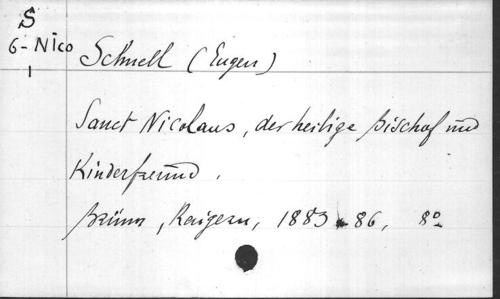 S
6-Nico
1
Schnell (Eugen)
Sanct Nicolaus, der heilige Bischof und
Kinderfreund.
Brünn, Raigern, 1883-86, 8o